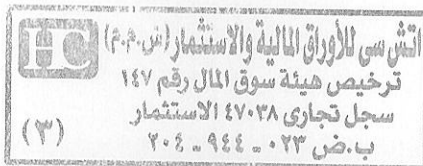 HC اتش سى للأوراق المالية والاستثمار (ش.م.م)
ترخيص هيئة سوق المال رقم ١٤٧
سجل تجارى ٤٧٠٣٨ الاستثمار
ب.ض ٠٢٣ - ٩٤٤ - ٢٠٤
(٣)